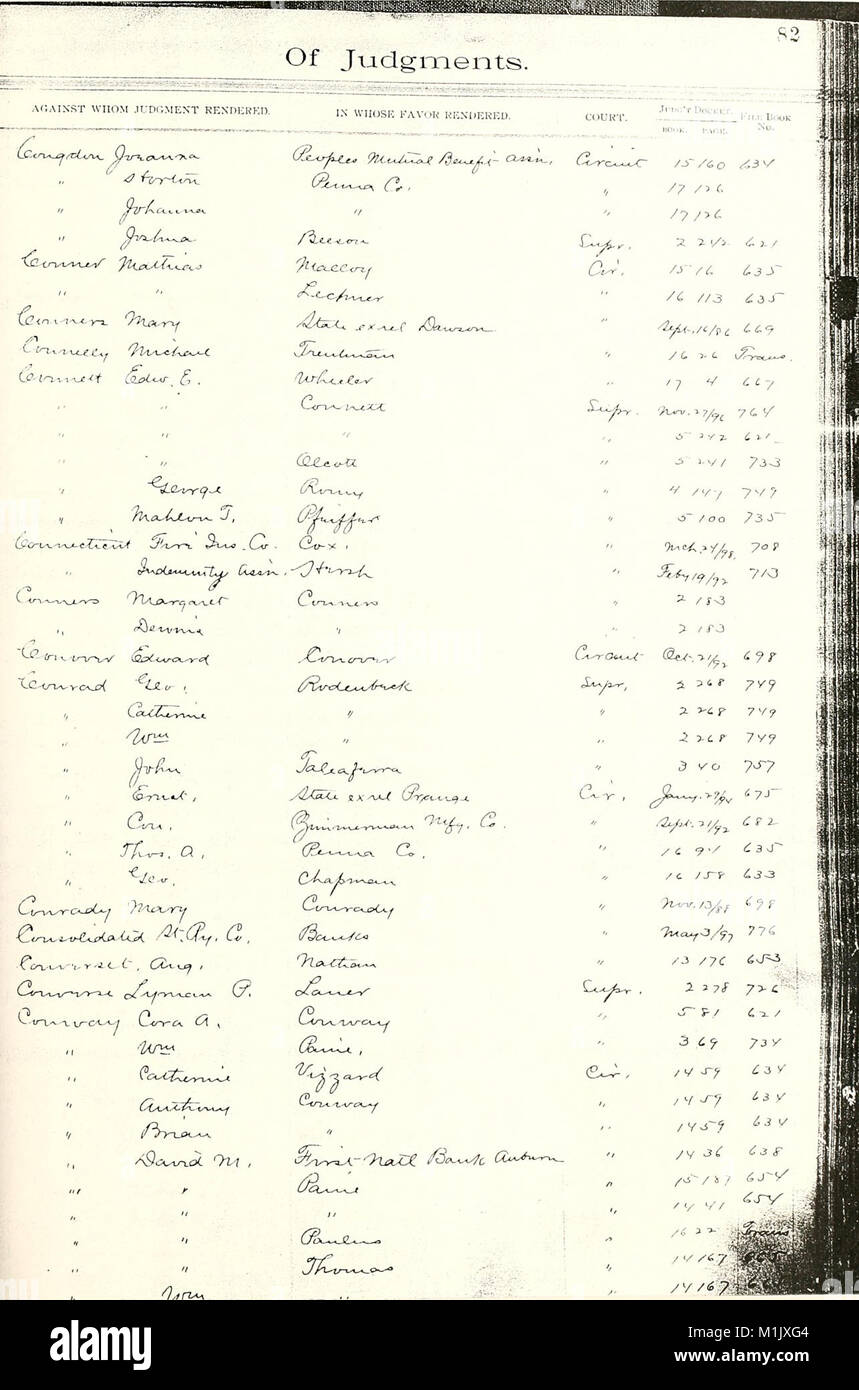 82
Of Judgments.
AGAINST WHOM JUDGMENT RENDERED. IN WHOSE FAVOR RENDERED. COURT. JUDG'T DOCKET. FILE BOOK
BOOK. PAGE. No.
Congdon Joxanna Peoples Mutual Benefit assn. Circuit 15 160 634
" Storton Penna Co. " 17 126
" Johanna " " 17 126
" Joshua Beeson Supr. 2 242 621
Conner Mathias Malloy Cir. 15 16 635
" " Lechner " 16 113 635
Conners Mary State ex rel Dawson " Sept. 16/86 669
Connelly Michael Trentman " 16 26 Trans.
Connett Edw. E. Wheeler " 17 4 667
" " Connett Supr. Nov. 27/96 764
" " " " 5 242 621
" " Olcott " 5 241 733
" George Romy " 4 147 749
" Mahlon T. Pfeiffer " 5 100 735
Connecticut Fire Ins. Co. Cox. " Mch. 24/98 708
" Indemnity Assn. Hirsh " Feby 19/92 713
Conners Margaret Conners " 2 183
" Dennis " " 2 183
Conover Edward Conover Circuit Oct. 21/92 698
Conrad Geo. Rodenbeck Supr. 2 268 749
" Catherine " " 2 268 749
" Wm " " 2 268 749
" John Taleaferra " 3 40 757
" Ernst. State ex rel Prange Cir. Jany. 29/94 675
" Con. Zimmerman Mfg. Co. " Sept. 21/92 682
" Thos. A. Penna Co. " 16 94 635
" Geo. Chapman " 16 158 633
Conrady Mary Conrady " Nov. 13/88 698
Consolidated St. Ry. Co. Banks " May 3/97 776
Converset. Aug. Nathan " 13 176 653
Converse Lyman P. Lauer Supr. 2 278 726
Conway Cora A. Conway " 5 81 621
" Wm Paine. " 3 69 734
" Catherine Vizzard Cir. 14 59 634
" Anthony Conway " 14 59 634
" Brian " " 14 59 634
" David M. First Natl Bank Auburn " 14 36 638
" " Paine " 15 187 654
" " " " 14 41 654
" " Paulus " 16 22 Trans
" " Thomas " 14 167
" Wm " " 14 167
alamy
Image ID: M1JXG4
www.alamy.com